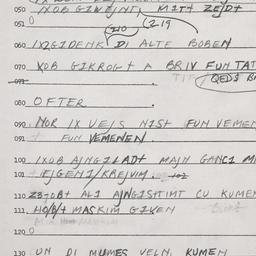 050 IXOB GIWEJNT, MITH ZEJDT
051 0
210 (219
060 IX2GIDENK DI ALTE BOBEN
070 XOB GIKROGT A BRIV FUN TAT
QEDS B
080 OFTER .
090 NOR IX VEIS NIST FUN VEMEN
091 FUN VEMENEN.
100 IXOB AJNGILADT MAJN GANCI M
101 EJGENI KREJVIM. 102
110 ZEJOBT ALI AJNGISTIMT CU KUMEN
111 HOBT MASKIM GIVEN
120 0
130 UN DI MUMES VELN KUMEN